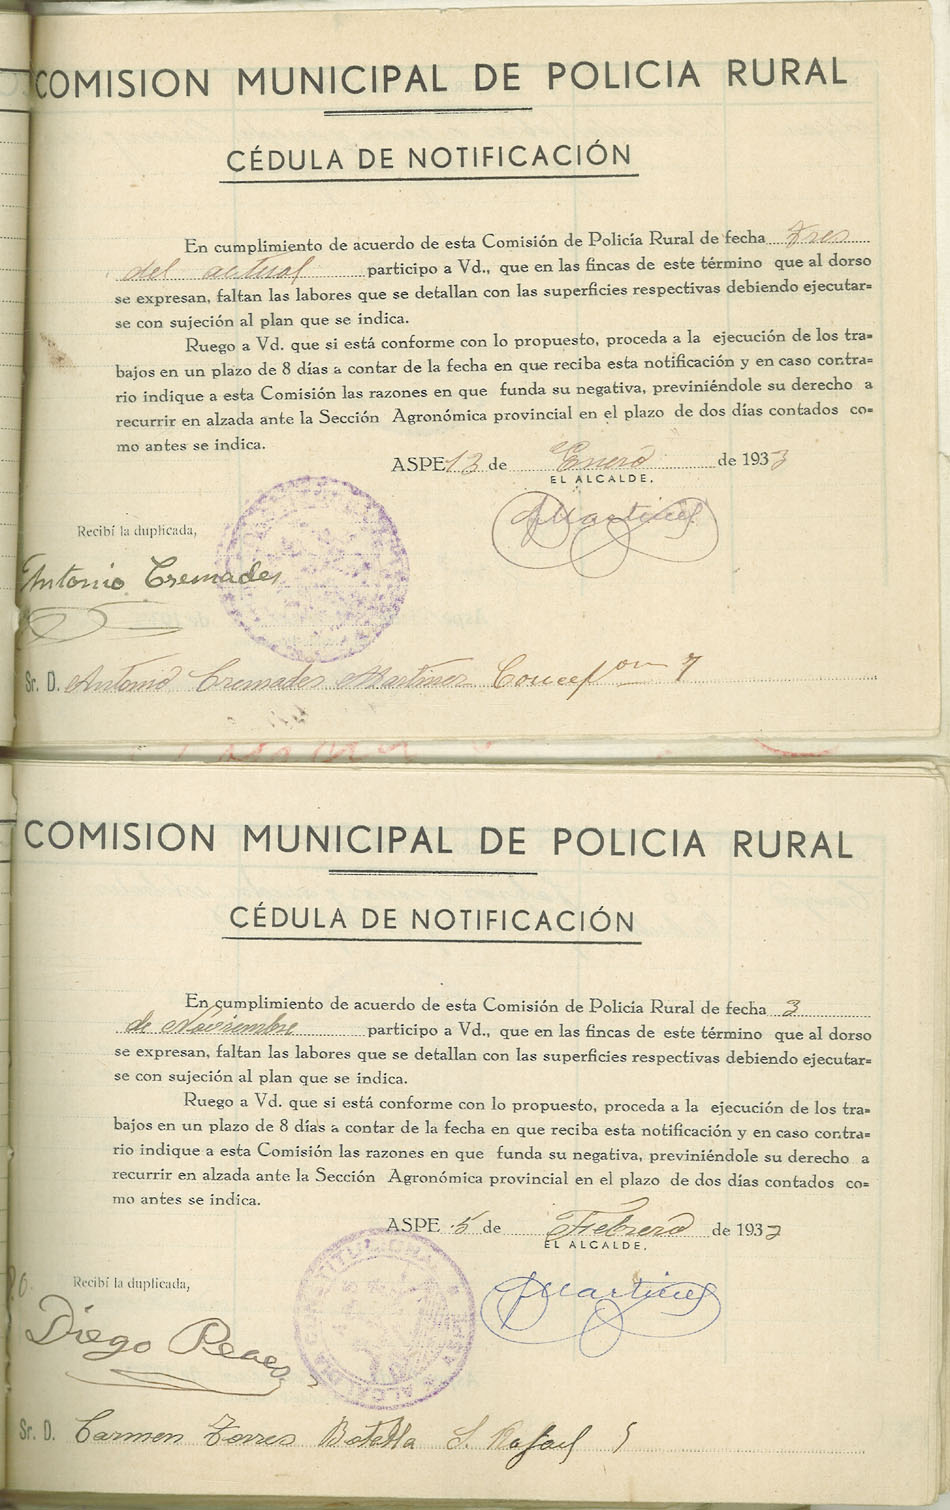 COMISION MUNICIPAL DE POLICIA RURAL
CÉDULA DE NOTIFICACIÓN
En cumplimiento de acuerdo de esta Comisión de Policía Rural de fecha tres
del actual participo a Vd., que en las fincas de este término que al dorso
se expresan, faltan las labores que se detallan con las superficies respectivas debiendo ejecutar=
se con sujeción al plan que se indica.
Ruego a Vd. que si está conforme con lo propuesto, proceda a la ejecución de los tra=
bajos en un plazo de 8 días a contar de la fecha en que reciba esta notificación y en caso contra=
rio indique a esta Comisión las razones en que funda su negativa, previniéndole su derecho a
recurrir en alzada ante la Sección Agronómica provincial en el plazo de dos días contados co=
mo antes se indica.
ASPE 13 de Enero de 1933
EL ALCALDE,
Recibí la duplicada,
Martinez
Antonio Cremades
Sr. D. Antonio Cremades Martinez Concepon 7
COMISION MUNICIPAL DE POLICIA RURAL
CÉDULA DE NOTIFICACIÓN
En cumplimiento de acuerdo de esta Comisión de Policía Rural de fecha 3
de Noviembre participo a Vd., que en las fincas de este término que al dorso
se expresan, faltan las labores que se detallan con las superficies respectivas debiendo ejecutar=
se con sujeción al plan que se indica.
Ruego a Vd. que si está conforme con lo propuesto, proceda a la ejecución de los tra=
bajos en un plazo de 8 días a contar de la fecha en que reciba esta notificación y en caso contra=
rio indique a esta Comisión las razones en que funda su negativa, previniéndole su derecho a
recurrir en alzada ante la Sección Agronómica provincial en el plazo de dos días contados co=
mo antes se indica.
ASPE 5 de Febrero de 193
EL ALCALDE,
P.O. Recibí la duplicada,
Martinez
Diego
CONSTITUCIONAL
ALCALDIA
Sr. D. Carmen Torres Botella S. Rafael 5